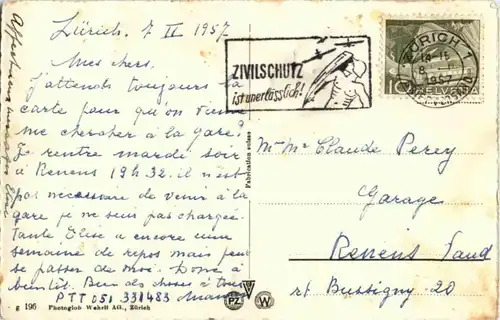 Zürich. 7 II 1957
Mes chers.
J'attends toujours la
carte pour qu'on vienne
me chercher à la gare?
Je rentre mardi soir
à Renens 19 h 32. il n'est
pas nécessaire de venir à la
gare je ne suis pas chargée.
Tante Elise a encore une
semaine de repos mais peut
se passer de moi. Donc à
bientôt. Bien des choses à tous
PTT 051 331483
Affectueux
ZIVILSCHUTZ
ist unerlässlich!
ZÜRICH 1
1957
10 HELVETIA
Fabrication suisse
M. Mme Claude Perey
Garage
Renens Vaud
rt Bussigny 20
g 196 Photoglob Wehrli AG., Zürich
PZ W